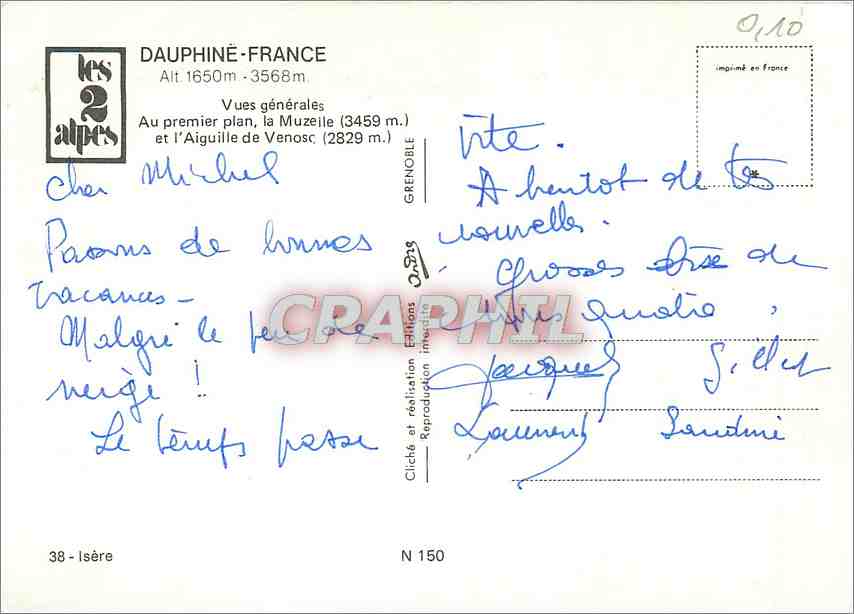 0,10
les
2
alpes
DAUPHINÉ-FRANCE
Alt. 1650m - 3568m.
Vues générales
Au premier plan, la Muzelle (3459 m.)
et l'Aiguille de Venosc (2829 m.)
imprimé en France
Cher Michel
Passons de bonnes
vacances -
Malgré le peu de
neige !
Le temps passe
vite.
A bientot de tes
nouvelles.
Grosses bise de
nous quatre,
Jacques Gillet
Laurent Sandrine
GRENOBLE
André
Cliché et réalisation Editions
Reproduction interdite
CPAPHIL
38 - Isère
N 150